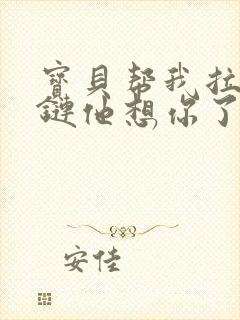 寶貝帮我拉
鏈他想你了
安佳